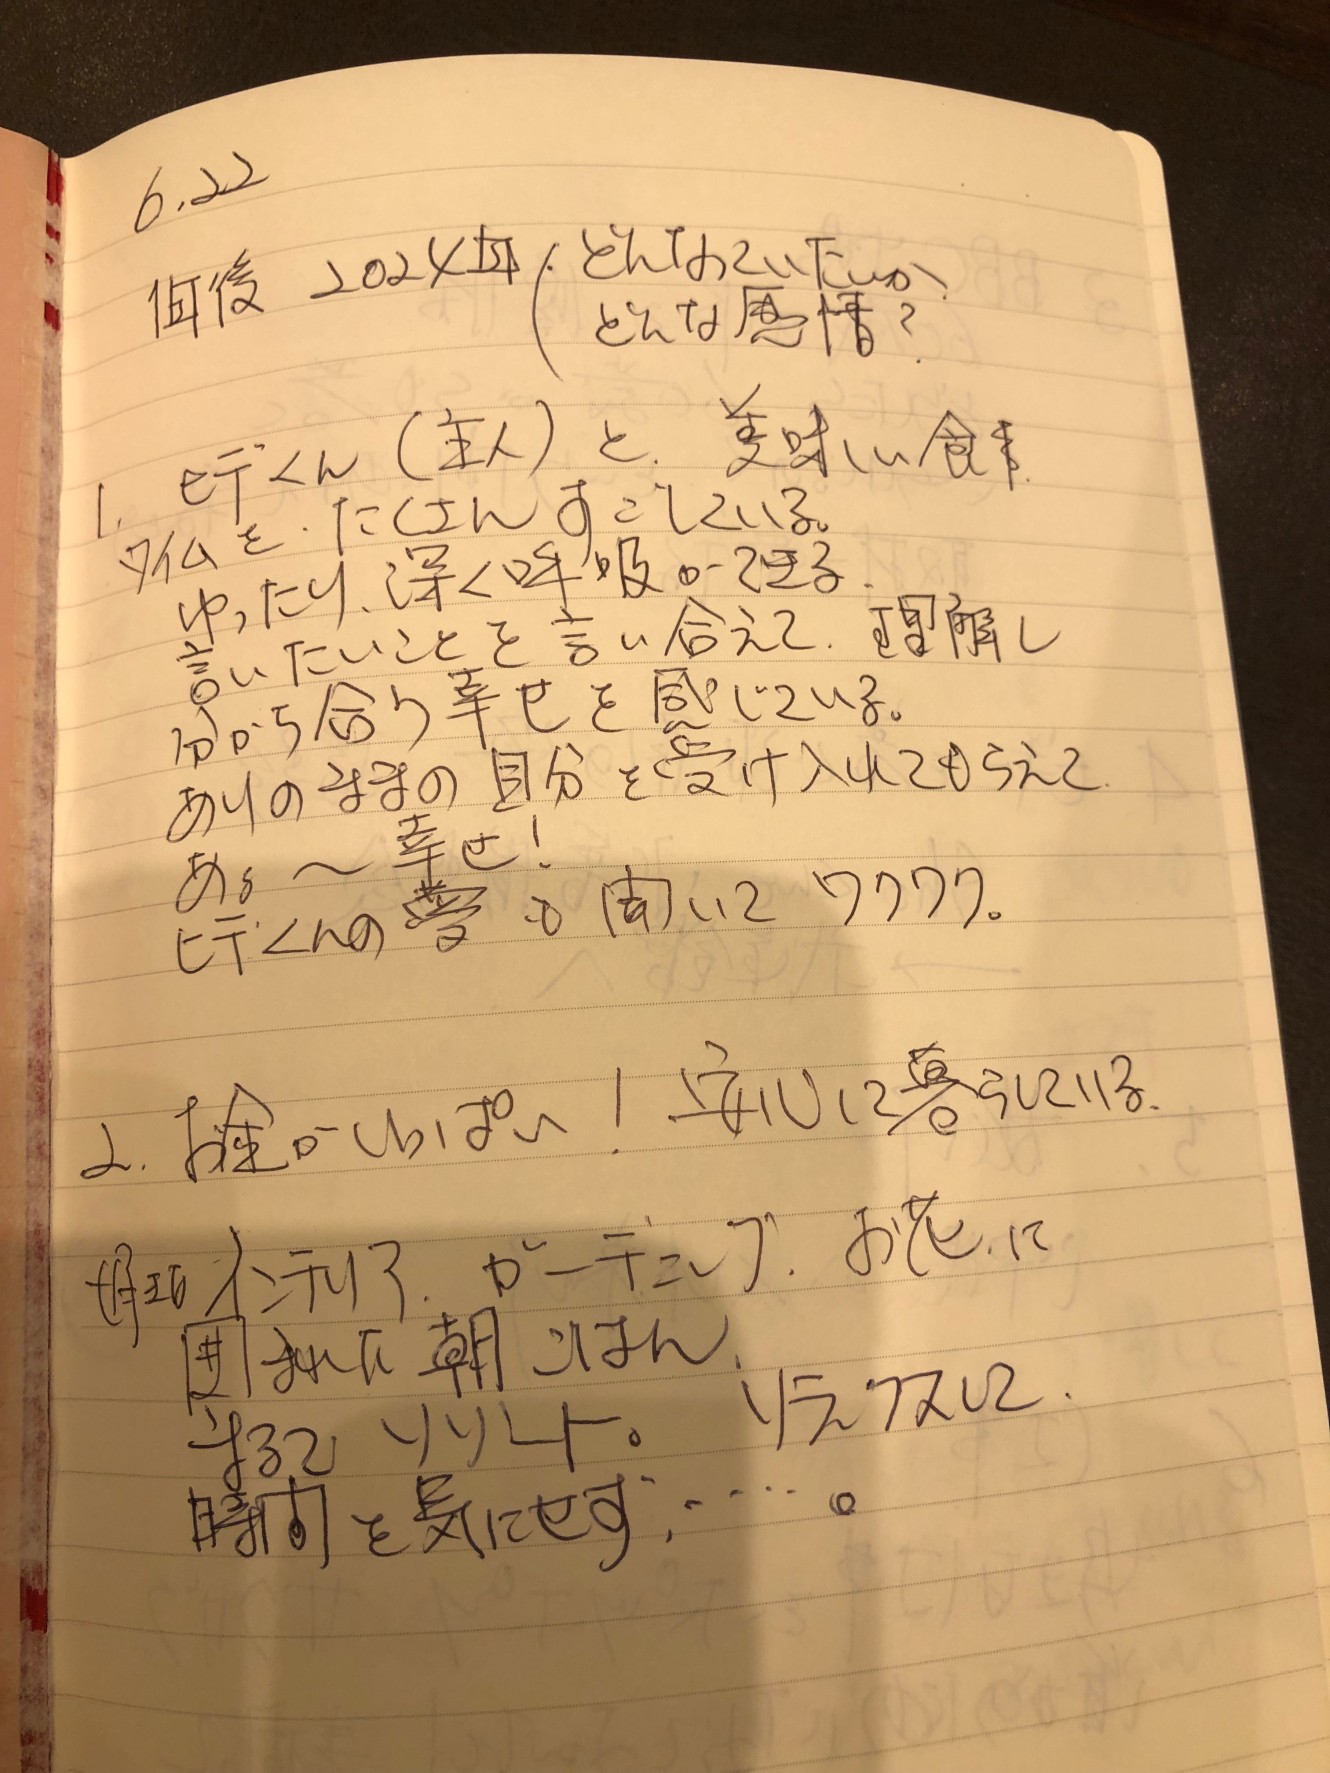 6.22
何後 2024年 どんなこといたいか、
どんな感情?
1. ヒデくん(主人)と、美味しい食事
タイムを、たくさんすごしている。
ゆったり、深く呼吸ができる。
言いたいことを言い合えて、理解し
分かち合う幸せを感じている。
ありのままの自分を受け入れてもらえて
あぁ〜幸せ!
ヒデくんの夢も聞いてワクワク。
2. お金がいっぱい!安心して暮らしている。
毎日 インテリア、ガーデニング、お花に
囲まれた朝ごはん、
まるでリゾート。リラックスして、
時間を気にせず、・・・・・。